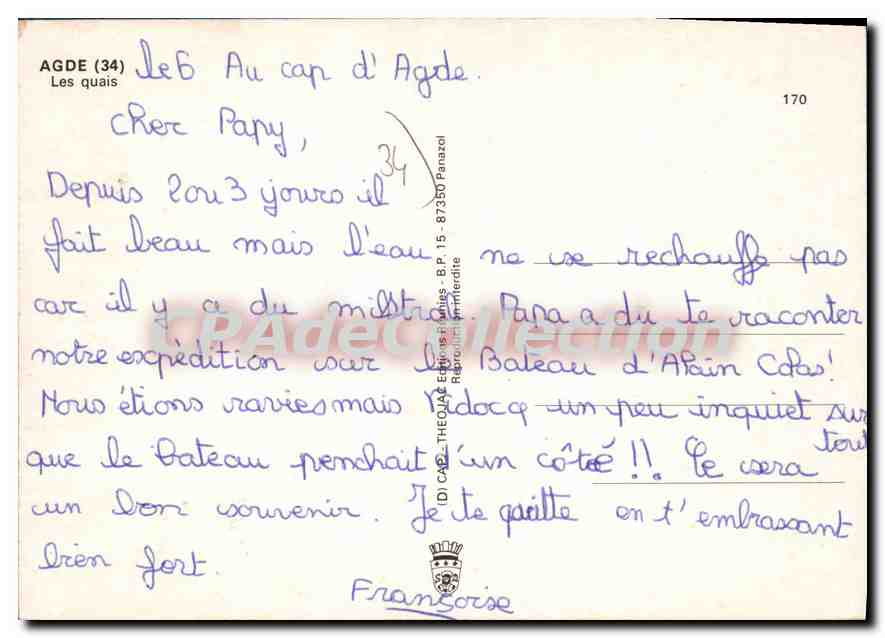 AGDE (34)
Les quais
170
le 6 Au cap d'Agde.
Cher Papy,
34
Depuis 2 ou 3 jours il
fait beau mais l'eau ne se rechauffe pas
car il y a du milstral. Papa a du te raconter
notre expédition sur le Bateau d'Alain Colas!
Nous étions ravies mais Vidocq un peu inquiet sur
tout
que le bateau penchait d'un côté !! Ce sera
un bon souvenir. Je te quitte en t'embrassant
bien fort.
Françoise
(D) CAP - THEOJAC Editions - B.P. 15 - 87350 Panazol
Reproduction interdite
CPAdecollection